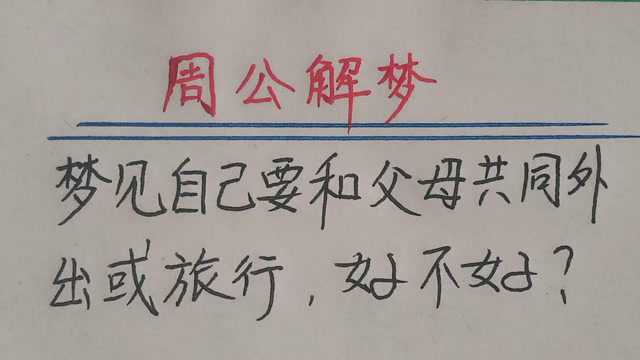 周公解梦
梦见自己要和父母共同外
出或旅行，好不好？